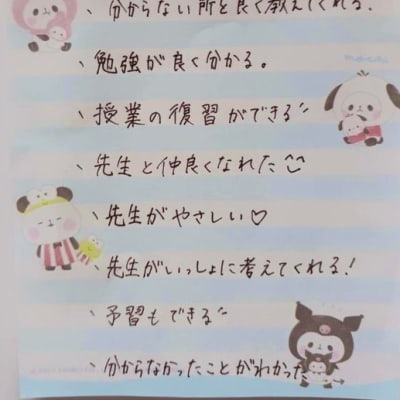 、分からない所を良く教えてくれる。
、勉強が良く分かる。
、授業の復習ができる
、先生と仲良くなれた^^
、先生がやさしい♡
、先生がいっしょに考えてくれる!
、予習もできる
、分からなかったことがわかった